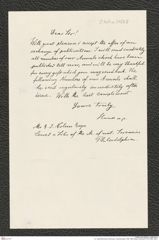 Dear Sir!
With great pleasure I accept the offer of an
exchange of publications. I will send immediately
all numbers of our Annals which have been
published till now, and will be very thankful
for every gift which you may send back. The
following Numbers of our Annals shall
be sent regularly immediately after
issue. With the best compliment
Yours truly
Mr E. J. Nolan Esqu
& Libr. of the Ac. of nat. Sciences
Philadelphia